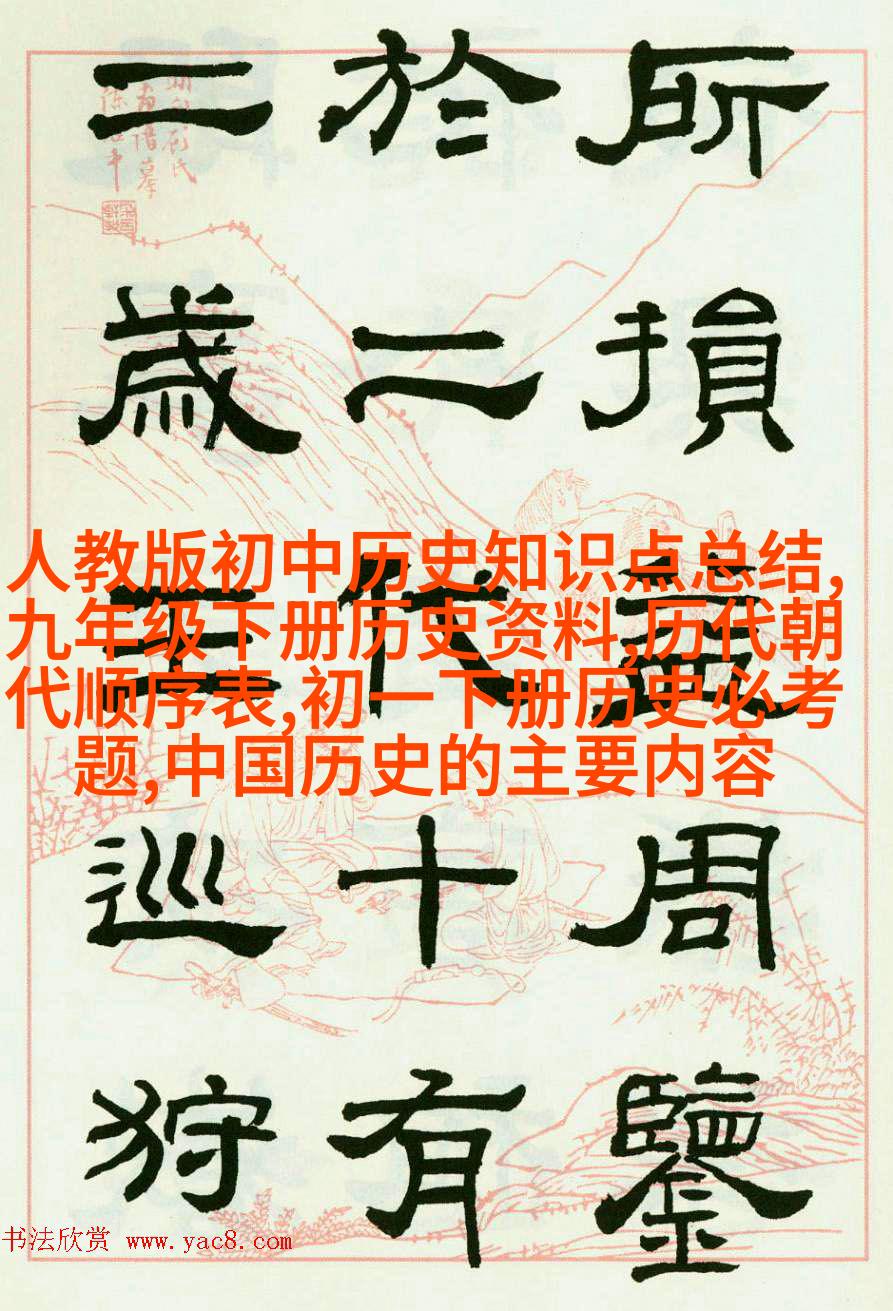 所損益周鑒
於二代十有
二歲王巡狩
人教版初中历史知识点总结,
九年级下册历史资料,历代朝
代顺序表,初一下册历史必考
题,中国历史的主要内容
书法欣赏 www.yac8.com